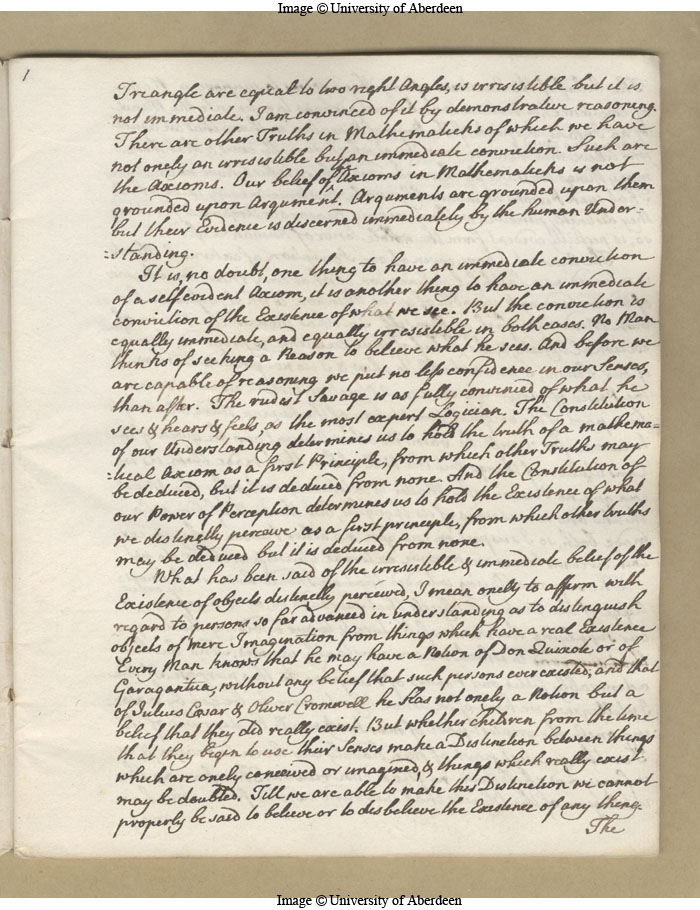 Image © University of Aberdeen
1
Triangle are equal to two right Angles, is irresistible but it is
not immediate. I am convinced of it by demonstrative reasoning.
There are other Truths in Mathematicks of which we have
not onely an irresistible but an immediate conviction. Such are
the Axioms. Our belief of Axioms in Mathematicks is not
grounded upon Argument. Arguments are grounded upon them
but their Evidence is discerned immediately by the human Under-
=standing.
It is, no doubt, one thing to have an immediate conviction
of a selfevident Axiom, it is another thing to have an immediate
conviction of the Existence of what we see. But the conviction is
equally immediate, and equally irresistible in both cases. No Man
thinks of seeking a Reason to believe what he sees. And before we
are capable of reasoning we put no less confidence in our Senses,
than after. The rudest Savage is as fully convinced of what he
sees & hears & feels, as the most expert Logician. The Constitution
of our Understanding determines us to hold the truth of a mathema=
=tical Axiom as a first Principle, from which other Truths may
be deduced, but it is deduced from none. And the Constitution of
our Power of Perception determines us to hold the Existence of what
we distinctly perceive as a first principle, from which other truths
may be deduced but it is deduced from none.
What has been said of the irresistible & immediate belief of the
Existence of objects distinctly perceived, I mean onely to affirm with
regard to persons so far advanced in understanding as to distinguish
objects of mere Imagination from things which have a real Existence
Every Man knows that he may have a Notion of Don Quixote or of
Garagantua, without any belief that such persons ever existed; and that
of Julius Caesar & Oliver Cromwell he has not onely a Notion but a
belief that they did really exist. But whether children from the time
that they begin to use their Senses make a Distinction between things
which are onely conceived or imagined, & things which really exist
may be doubted. Till we are able to make this Distinction we cannot
properly be said to believe or to disbelieve the Existence of any thing.
The
Image © University of Aberdeen